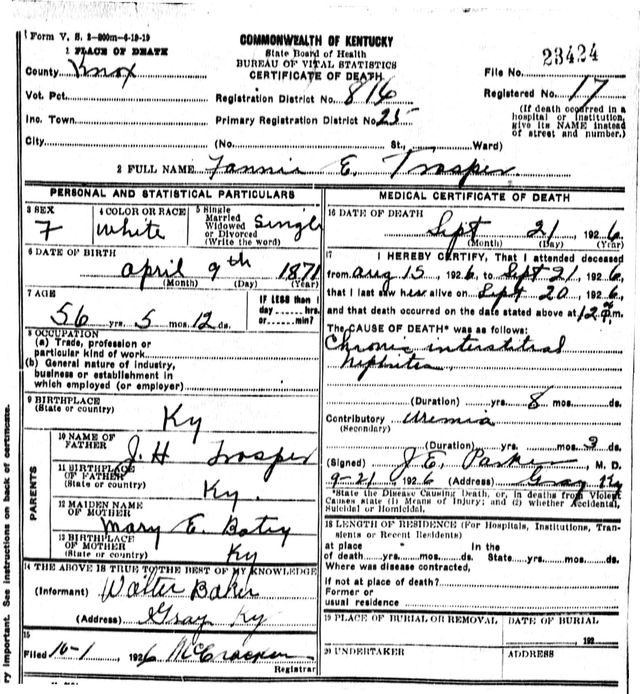 Form V. S. 2-800m-6-19-19
COMMONWEALTH OF KENTUCKY
State Board of Health
BUREAU OF VITAL STATISTICS
CERTIFICATE OF DEATH
23424
File No.
Registered No. 17
(If death occurred in a hospital or institution, give its NAME instead of street and number.)
1 PLACE OF DEATH
County Knox
Vot. Pct.
Registration District No. 816
Inc. Town
Primary Registration District No. 25
City (No. St., Ward)
2 FULL NAME Fannie E. Trosper
PERSONAL AND STATISTICAL PARTICULARS
3 SEX
F
4 COLOR OR RACE
White
5 Single
Married
Widowed
or Divorced
(Write the word)
Single
6 DATE OF BIRTH
April 9th 1871
(Month) (Day) (Year)
7 AGE
56 yrs. 5 mos. 12 ds.
IF LESS than 1
day hrs.
or min?
8 OCCUPATION
(a) Trade, profession or
particular kind of work
(b) General nature of industry,
business or establishment in
which employed (or employer)
9 BIRTHPLACE
(State or country)
Ky
PARENTS
10 NAME OF
FATHER
J. H. Trosper
11 BIRTHPLACE
OF FATHER
(State or country)
Ky.
12 MAIDEN NAME
OF MOTHER
Mary E.
13 BIRTHPLACE
OF MOTHER
(State or country)
Ky
14 THE ABOVE IS TRUE TO THE BEST OF MY KNOWLEDGE
(Informant) Walter Baker
(Address) Gray Ky
15
Filed 10-1 1926 McCracken
Registrar
MEDICAL CERTIFICATE OF DEATH
16 DATE OF DEATH
Sept 21, 1926
(Month) (Day) (Year)
17
I HEREBY CERTIFY, That I attended deceased
from Aug 15, 1926, to Sept 21, 1926,
that I last saw her alive on Sept 20, 1926,
and that death occurred on the date stated above at 12 m.
The CAUSE OF DEATH* was as follows:
Chronic interstitial
Nephritis
(Duration) yrs. 8 mos. ds.
Contributory Uremia
(Secondary)
(Duration) yrs. mos. 3 ds.
(Signed) J. E. Parker, M. D.
9-21, 1926 (Address) Gray Ky
*State the Disease Causing Death, or, in deaths from Violent
Causes state (1) Means of Injury; and (2) whether Accidental,
Suicidal or Homicidal.
18 LENGTH OF RESIDENCE (For Hospitals, Institutions, Transients or Recent Residents)
at place In the
of death yrs. mos. ds. State yrs. mos. ds.
Where was disease contracted,
if not at place of death?
Former or
usual residence
19 PLACE OF BURIAL OR REMOVAL
DATE OF BURIAL
192
20 UNDERTAKER
ADDRESS
ry important. See instructions on back of certificate.